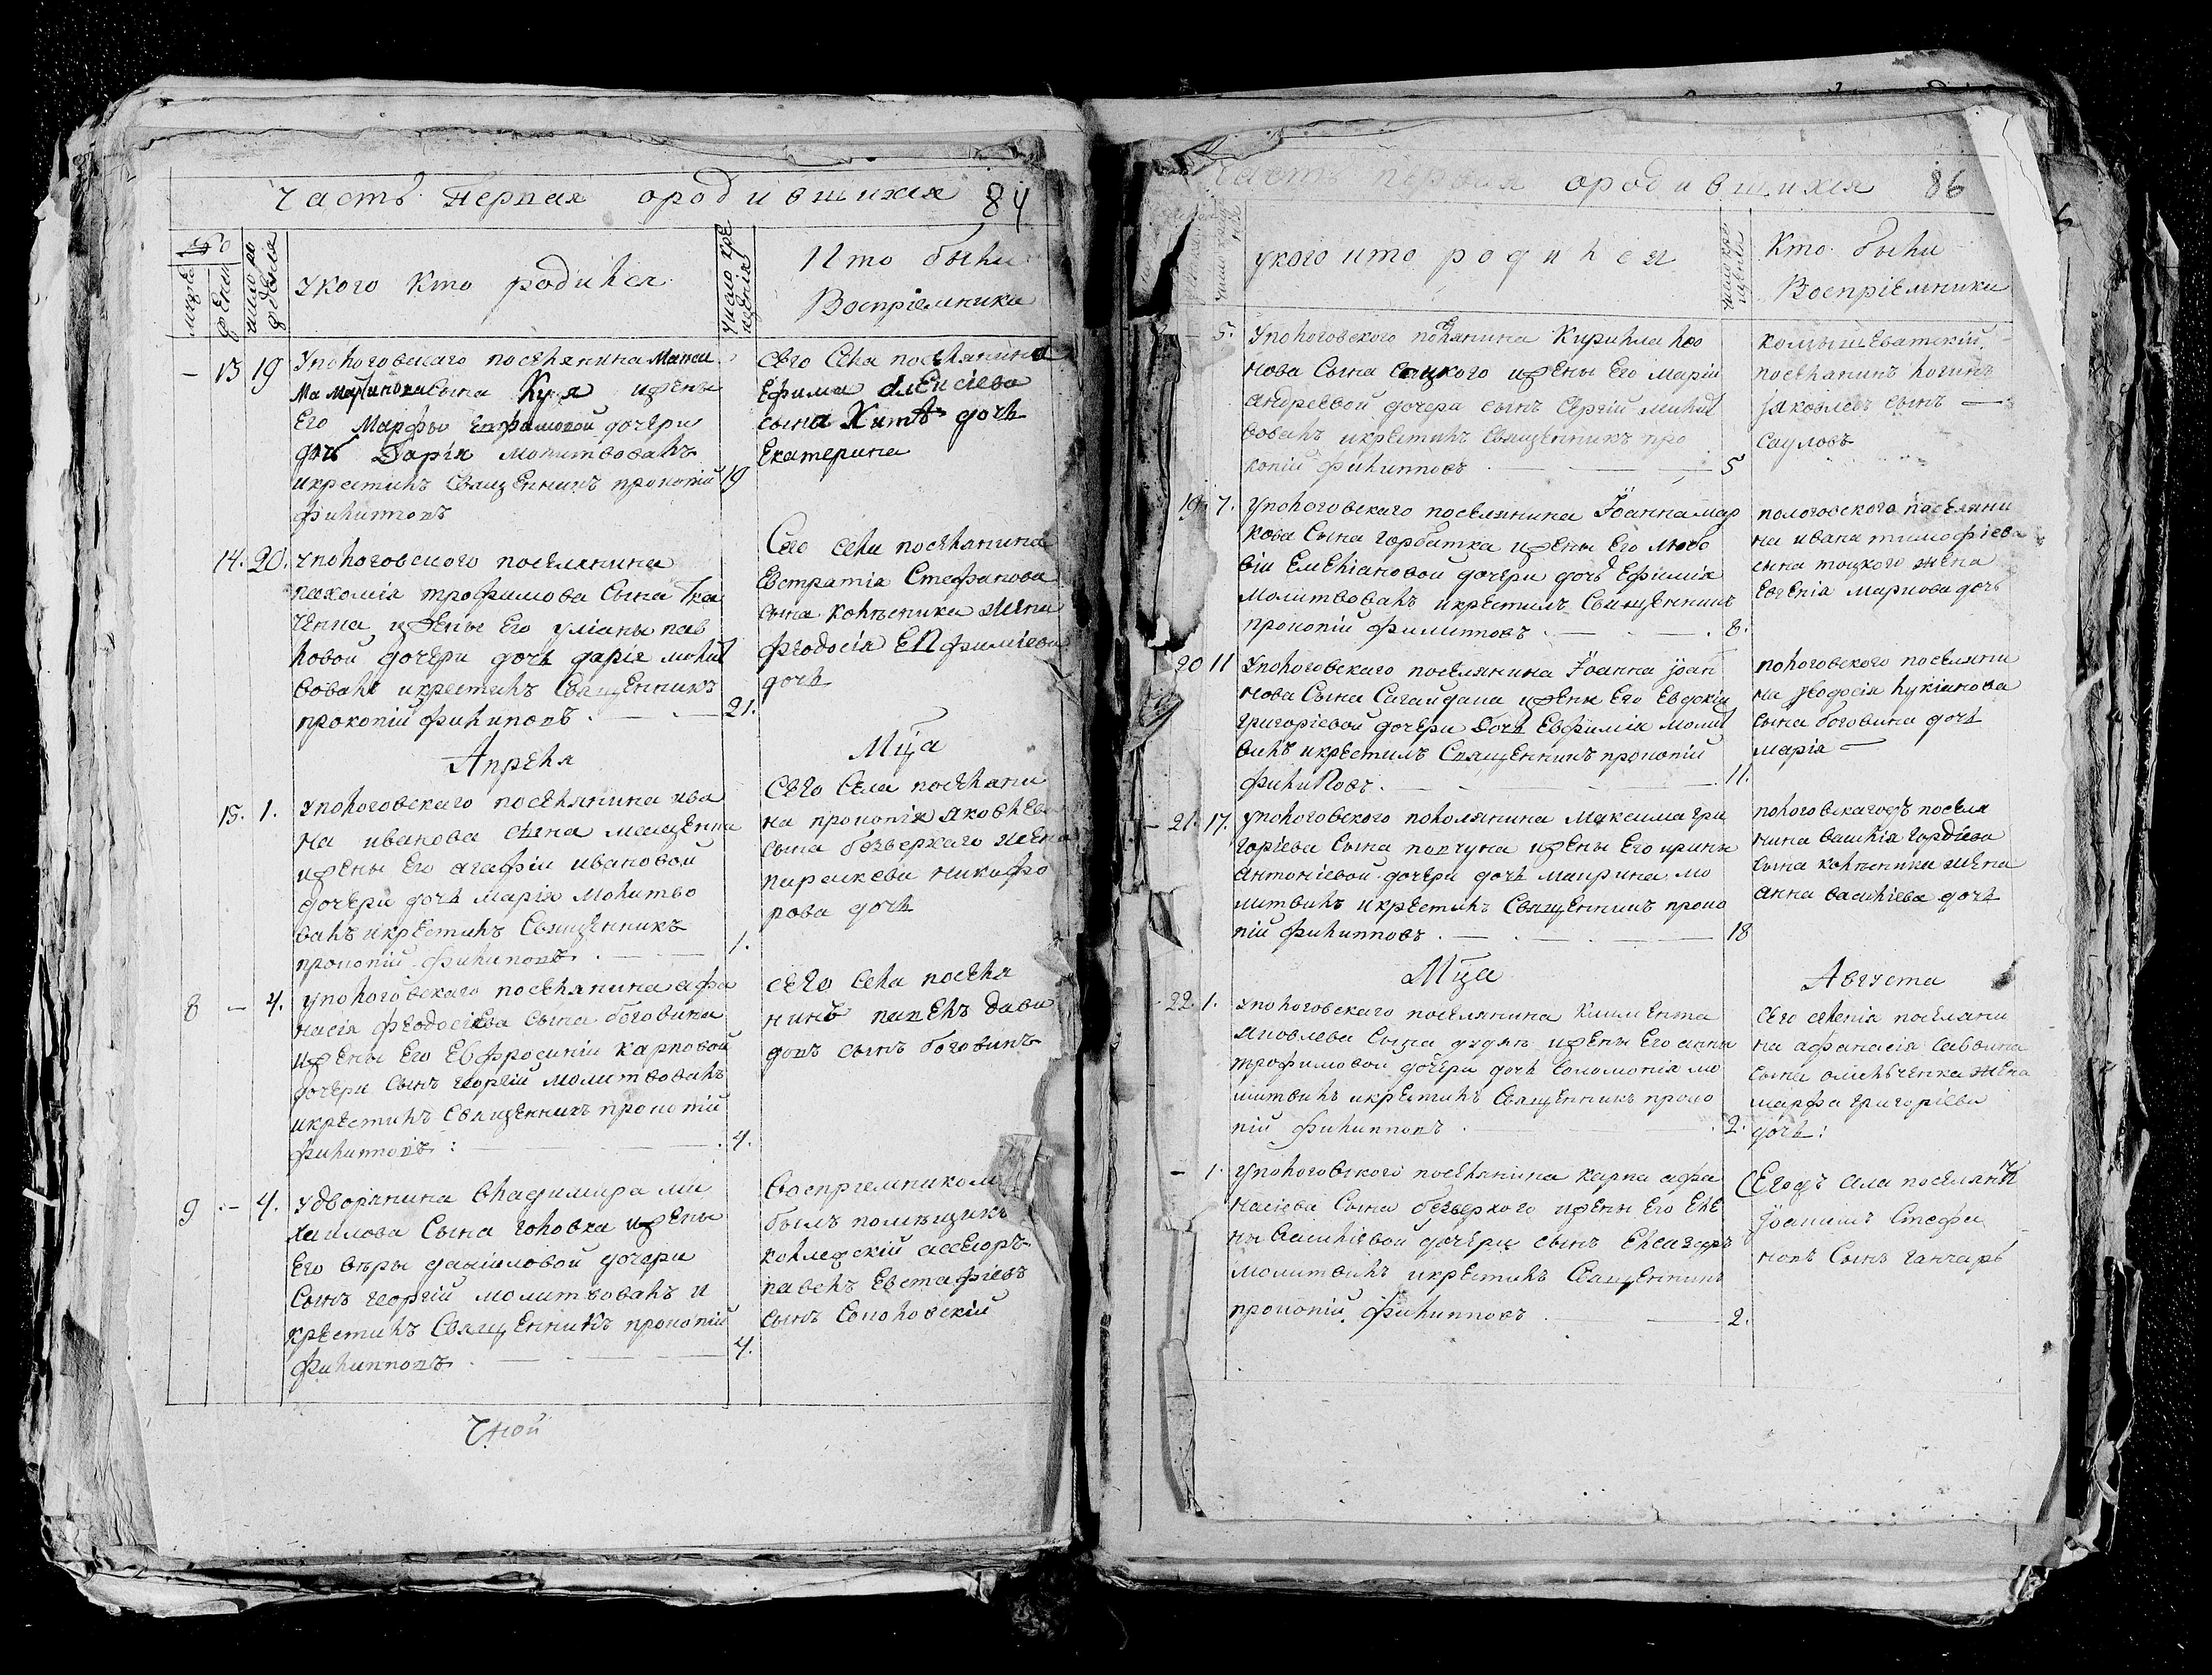 часть первая ородившихся 84
мужес
женс
число рождения
укого кто родился
число крещения
Кто были
Воспріемники
13 19 Упологовскаго поселянина Макси
ма Мартинова сына Куя ижены
Его Марфы Евфимовой дочери
дочь Дарія молитвовалъ
икрестилъ Священникъ прокопій 19
филипповъ
сего Села поселянина
Ефима алексіева
сына Хитъ дочь
Екатерина
14. 20. упологовского поселянина
пахомія трофимова Сына Тка
ченка ижены Его уліаны пав
ловой дочери дочь дарія молит
вовалъ икрестилъ Священникъ
прокопій филиповъ 21.
Сего села поселянина
Евстратія Стефанова
сына колѣсника жена
феодосія Евфиміева
дочь
Апреля
Мца
15. 1. упологовскаго поселянина ива
на иванова сына мащенка
ижены Его агафіи ивановой
дочери дочь марія молитво
валъ икрестилъ Священникъ
прокопій филиповъ 1.
Сего Села поселяни
на прокопія яковлева
сына безверхаго жена
параскева никифо
рова дочь
8 – 4. упологовскаго поселянина афа
насія феодосіева сына боговина
ижены Его Евфросиніи карповой
дочери сынъ георгій молитвовалъ
икрестилъ Священникъ прокопій
филипповъ: 4.
сего села поселя
нинъ павелъ дави
довъ сынъ боговинъ
9 – 4. удворянина владимира ми
хаилова Сына головка ижены
Его вѣры даніиловой дочери
Сынъ георгій молитвовалъ и
крестилъ Священникъ прокопій
филипповъ 4.
Воспріемникомъ
былъ помѣщикъ
колежскій асесоръ
павелъ Евстафіевъ
сынъ Соколовскій
часть первая ородившихся 86
укого кто родился
Кто были
Воспріемники
5. Упологовского поселянина Кирилла лео
нова Сына сацкого ижены Его Маріи
андреевой дочери сынъ Сергій молит
вовалъ икрестилъ Священникъ про
копій филипповъ 5
поселянинъ логинъ
яковлевъ сынъ
сауловъ
19. 7. Упологовскаго поселянина Іоанна мар
кова Сына горбатка ижены Его любо
віи Емеліановой дочери дочь Ефимія
молитвовалъ икрестилъ Священникъ
прокопій филипповъ 8.
пологовского поселяни
на ивана тимофіева
сына тоцкого жена
Евгенія маркова дочь
20 11 Упологовскаго поселянина Іоанна іоан
нова Сына Сагайдака ижены Его Евдокіи
григоріевой дочери дочь Евфимія молит
вилъ икрестилъ Священникъ прокопій
филиповъ 11.
пологовского поселяни
на феодосія лукіанова
сына боговина дочь
марія
21. 17. упологовского поселянина Максима гри
горіева Сына ковтуна ижены Его ирины
антоніевой дочери дочь макрина мо
литвилъ икрестилъ Священникъ проко
пій филипповъ 18
пологовскагожъ поселя
нина василія гордіева
сына колѣсника жена
анна василіева дочь
Мца
Августа
22. 1. упологовскаго поселянина климента
яковлева Сына дудки ижены Его анны
трофимовой дочери дочь соломонія мо
литвилъ икрестилъ Священникъ проко
пій филипповъ 2.
сего селенія поселяни
на афанасія саввина
сына омельченка жена
марфа григоріева
дочь:
1. упологовского поселянина карпа афа
насіева Сына безверхого ижены Его Еле
ны василіевой дочери сынъ Елеазаръ
молитвилъ икрестилъ Священникъ
прокопій филипповъ 2.
Сегожъ села поселянинъ
іоанникъ Стефа
новъ Сынъ ганчаръ